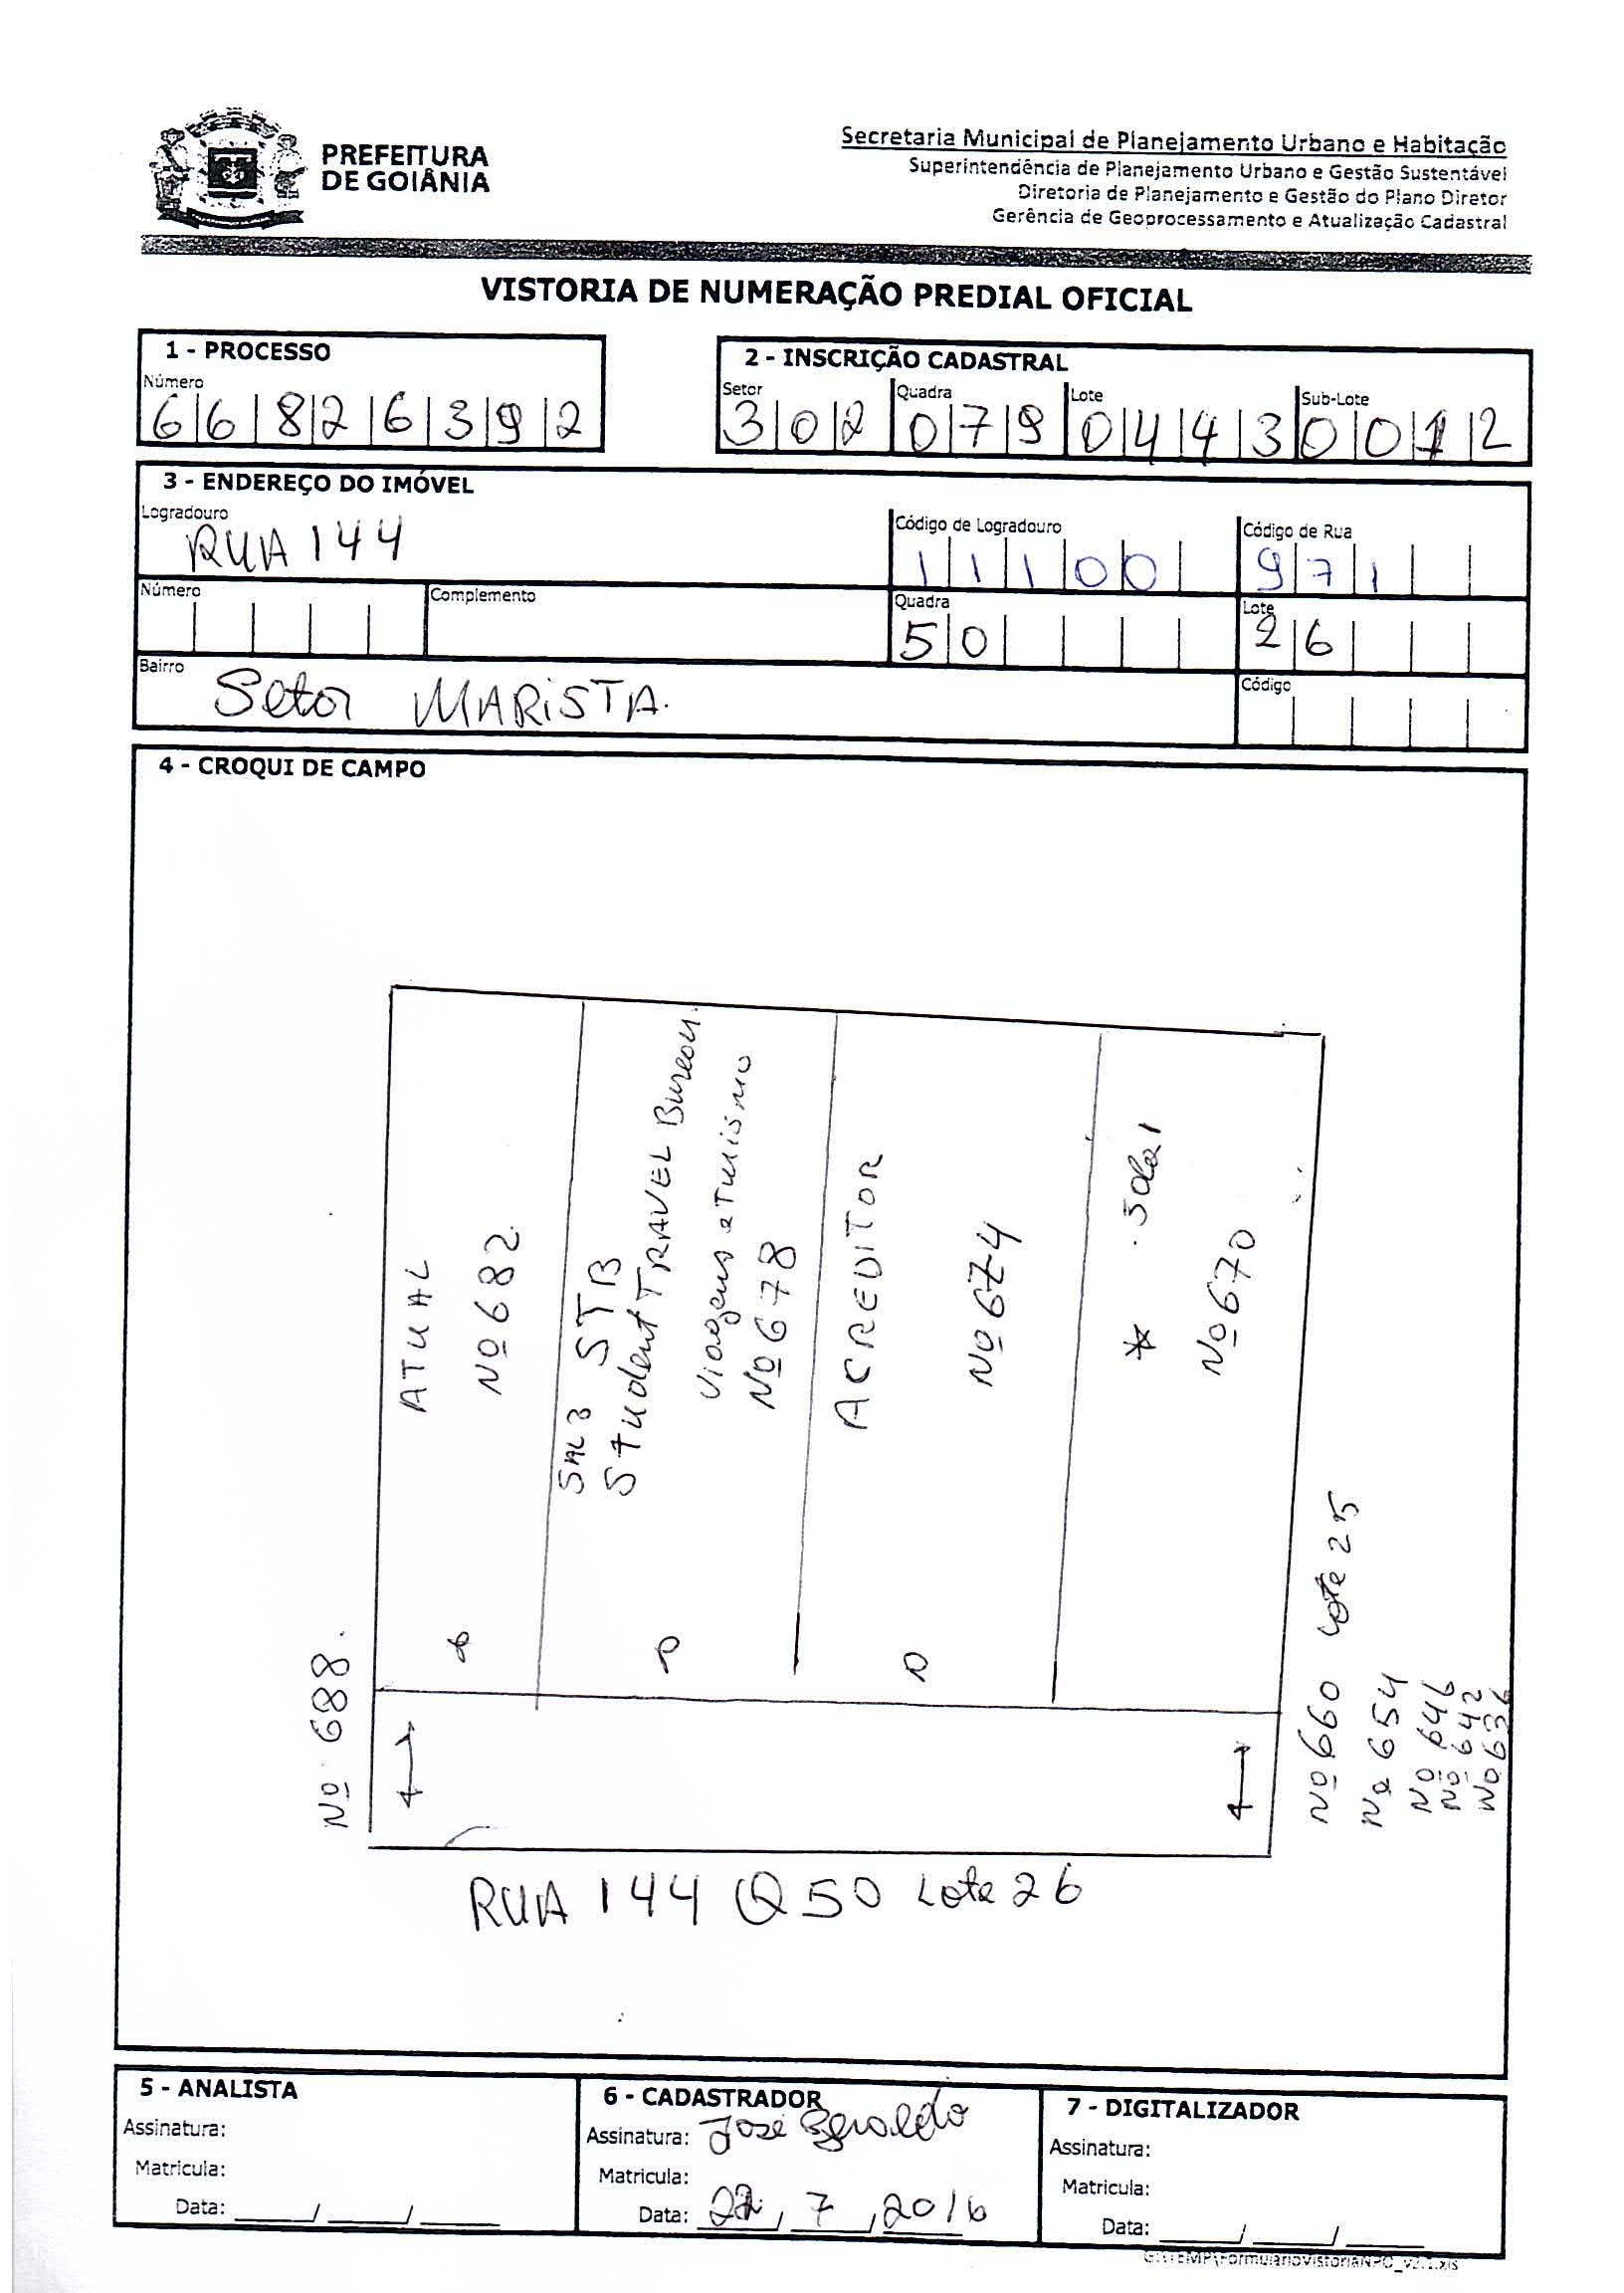 PREFEITURA
DE GOIÂNIA
Secretaria Municipal de Planejamento Urbano e Habitação
Superintendência de Planejamento Urbano e Gestão Sustentável
Diretoria de Planejamento e Gestão do Plano Diretor
Gerência de Geoprocessamento e Atualização Cadastral
VISTORIA DE NUMERAÇÃO PREDIAL OFICIAL
1 - PROCESSO
Número
6 6 8 2 6 3 9 2
2 - INSCRIÇÃO CADASTRAL
Setor Quadra Lote Sub-Lote
3 0 2 0 7 9 0 4 4 3 0 0 1 2
3 - ENDEREÇO DO IMÓVEL
Logradouro
RUA 144
Código de Logradouro
1 1 1 0 0
Código de Rua
9 7 1
Número
Complemento
Quadra
5 0
Lote
2 6
Bairro
Setor MARISTA.
Código
4 - CROQUI DE CAMPO
ATUAL
Nº 682
STB
Student TRAVEL Bureau.
Viagens e Turismo
Nº 678
ACREDITOR
Nº 674
* . Sala 1
Nº 670
Nº 688.
Nº 660 Lote 25
Nº 654
Nº 646
Nº 642
Nº 636
RUA 144 Q 50 Lote 26
5 - ANALISTA
Assinatura:
Matricula:
Data: ____/____/____
6 - CADASTRADOR
Assinatura: José Geraldo
Matricula:
Data: / 7 / 2016
7 - DIGITALIZADOR
Assinatura:
Matricula:
Data: ____/____/____
G:\TEMP\FormularioVistoriaNPO_v2.1.xls